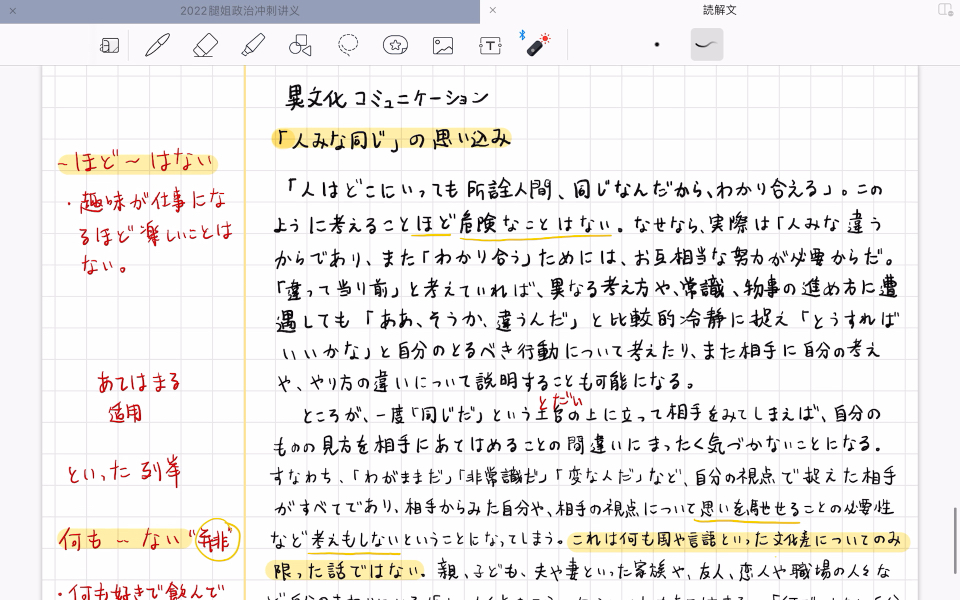 2022腿姐政治冲刺讲义
読解文
異文化コミュニケーション
「人みな同じ」の思い込み
「人はどこにいっても所詮人間、同じなんだから、わかり合える」。この
ように考えることほど危険なことはない。なせなら、実際は「人みな違う
からであり、また「わかり合う」ためには、お互相当な努力が必要からだ。
「違って当り前」と考えていれば、異なる考え方や、常識、物事の進め方に遭
遇しても「ああ、そうか、違うんだ」と比較的冷静に捉え「どうすれば
いいかな」と自分のとるべき行動について考えたり、また相手に自分の考え
や、やり方の違いについて説明することも可能になる。
とだい
ところが、一度「同じだ」という土台の上に立って相手をみてしまえば、自分の
ものの見方を相手にあてはめることの間違いにまったく気づかないことになる。
すなわち、「わがままだ」「非常識だ」「変なんだ」など、自分の視点で捉えた相手
がすべてであり、相手からみた自分や、相手の視点について思いを馳せることの必要性
など考えもしないということになってしまう。これは何も国や言語といった文化差についてのみ
限った話ではない。親、子ども、夫や妻といった家族や、友人、恋人や職場の人々な
~ほど~はない
・趣味が仕事にな
るほど楽しいことは
ない。
あてはまる
适用
といった 列举
何も~ない "並非"
・何も好きで飲んで